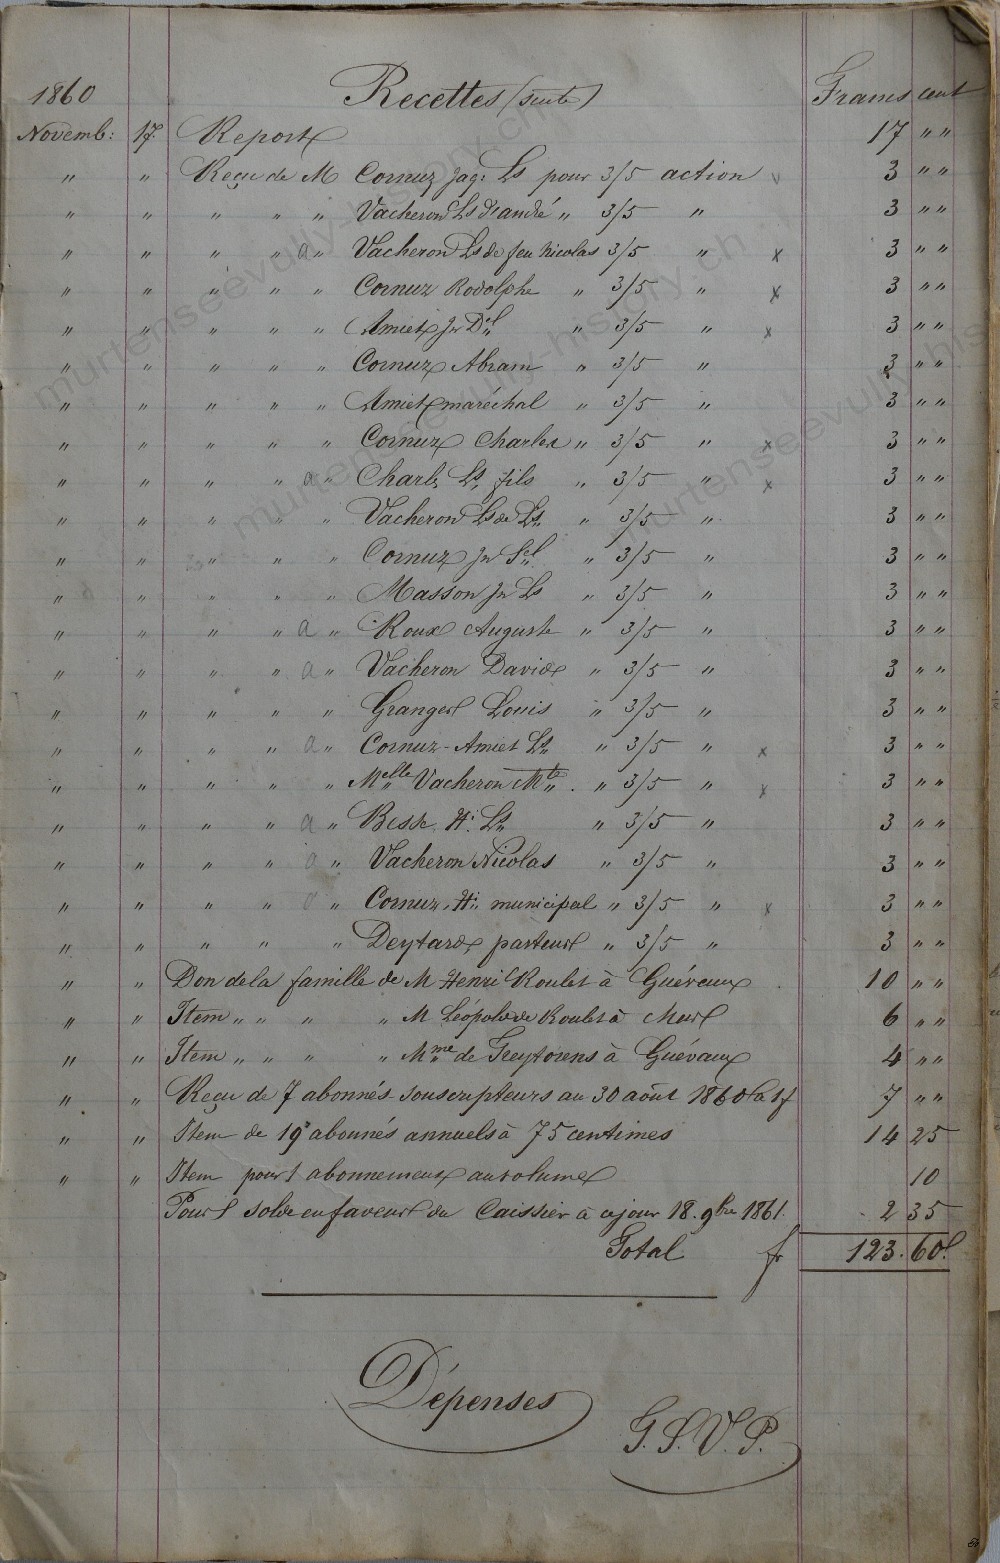 1860 Recettes (suite) Francs cent
Novemb: 17. Report 17 " "
" " Reçu de M Cornuz Jaq: Ls pour 3/5 action v 3 " "
" " " " " Vacheron Ls d'andré " 3/5 " 3 " "
" " " " a " Vacheron Ls de feu Nicolas 3/5 " x 3 " "
" " " " " Cornuz Rodolphe " 3/5 " x 3 " "
" " " " " Amiet Jn Dl " 3/5 " x 3 " "
" " " " " Cornuz Abram " 3/5 " 3 " "
" " " " " Amiet maréchal " 3/5 " 3 " "
" " " " " Cornuz Charles " 3/5 " x 3 " "
" " " " a " Charls Ls fils " 3/5 " x 3 " "
" " " " " Vacheron Ls de Ls " 3/5 " 3 " "
" " " " " Cornuz Jn Sl " 3/5 " 3 " "
" " " " " Masson Jn Ls " 3/5 " 3 " "
" " " " a " Roux Auguste " 3/5 " 3 " "
" " " " a " Vacheron David " 3/5 " 3 " "
" " " " " Granger Louis " 3/5 " 3 " "
" " " " a " Cornuz-Amiet Ls " 3/5 " x 3 " "
" " " " " Melle Vacheron Mte " 3/5 " x 3 " "
" " " " a " Besse. H: Ls " 3/5 " 3 " "
" " " " a " Vacheron Nicolas " 3/5 " 3 " "
" " " " " Cornuz. H: municipal " 3/5 " x 3 " "
" " " " " Deytard pasteur " 3/5 " 3 " "
" " Don de la famille de M Henri Roulet à Guévaux 10 " "
" " Item " " " " M Léopold de Roulet à Mur 6 " "
" " Item " " " " Mme de Treytorens à Guévaux 4 " "
" " Reçu de 7 abonnés souscripteurs au 30 août 1860 à 1 f 7 " "
" " Item de 19 abonnés annuels à 75 centimes 14 25
" " Item pour 1 abonnement au volume 10
Pour solde en faveur du Caissier à ce jour 18. 9bre 1861. 2 35
Total fr 123.60
Dépenses
T.S.V.P.
murtenseevully-history.ch
murtenseevully-history.ch
murtenseevully-history